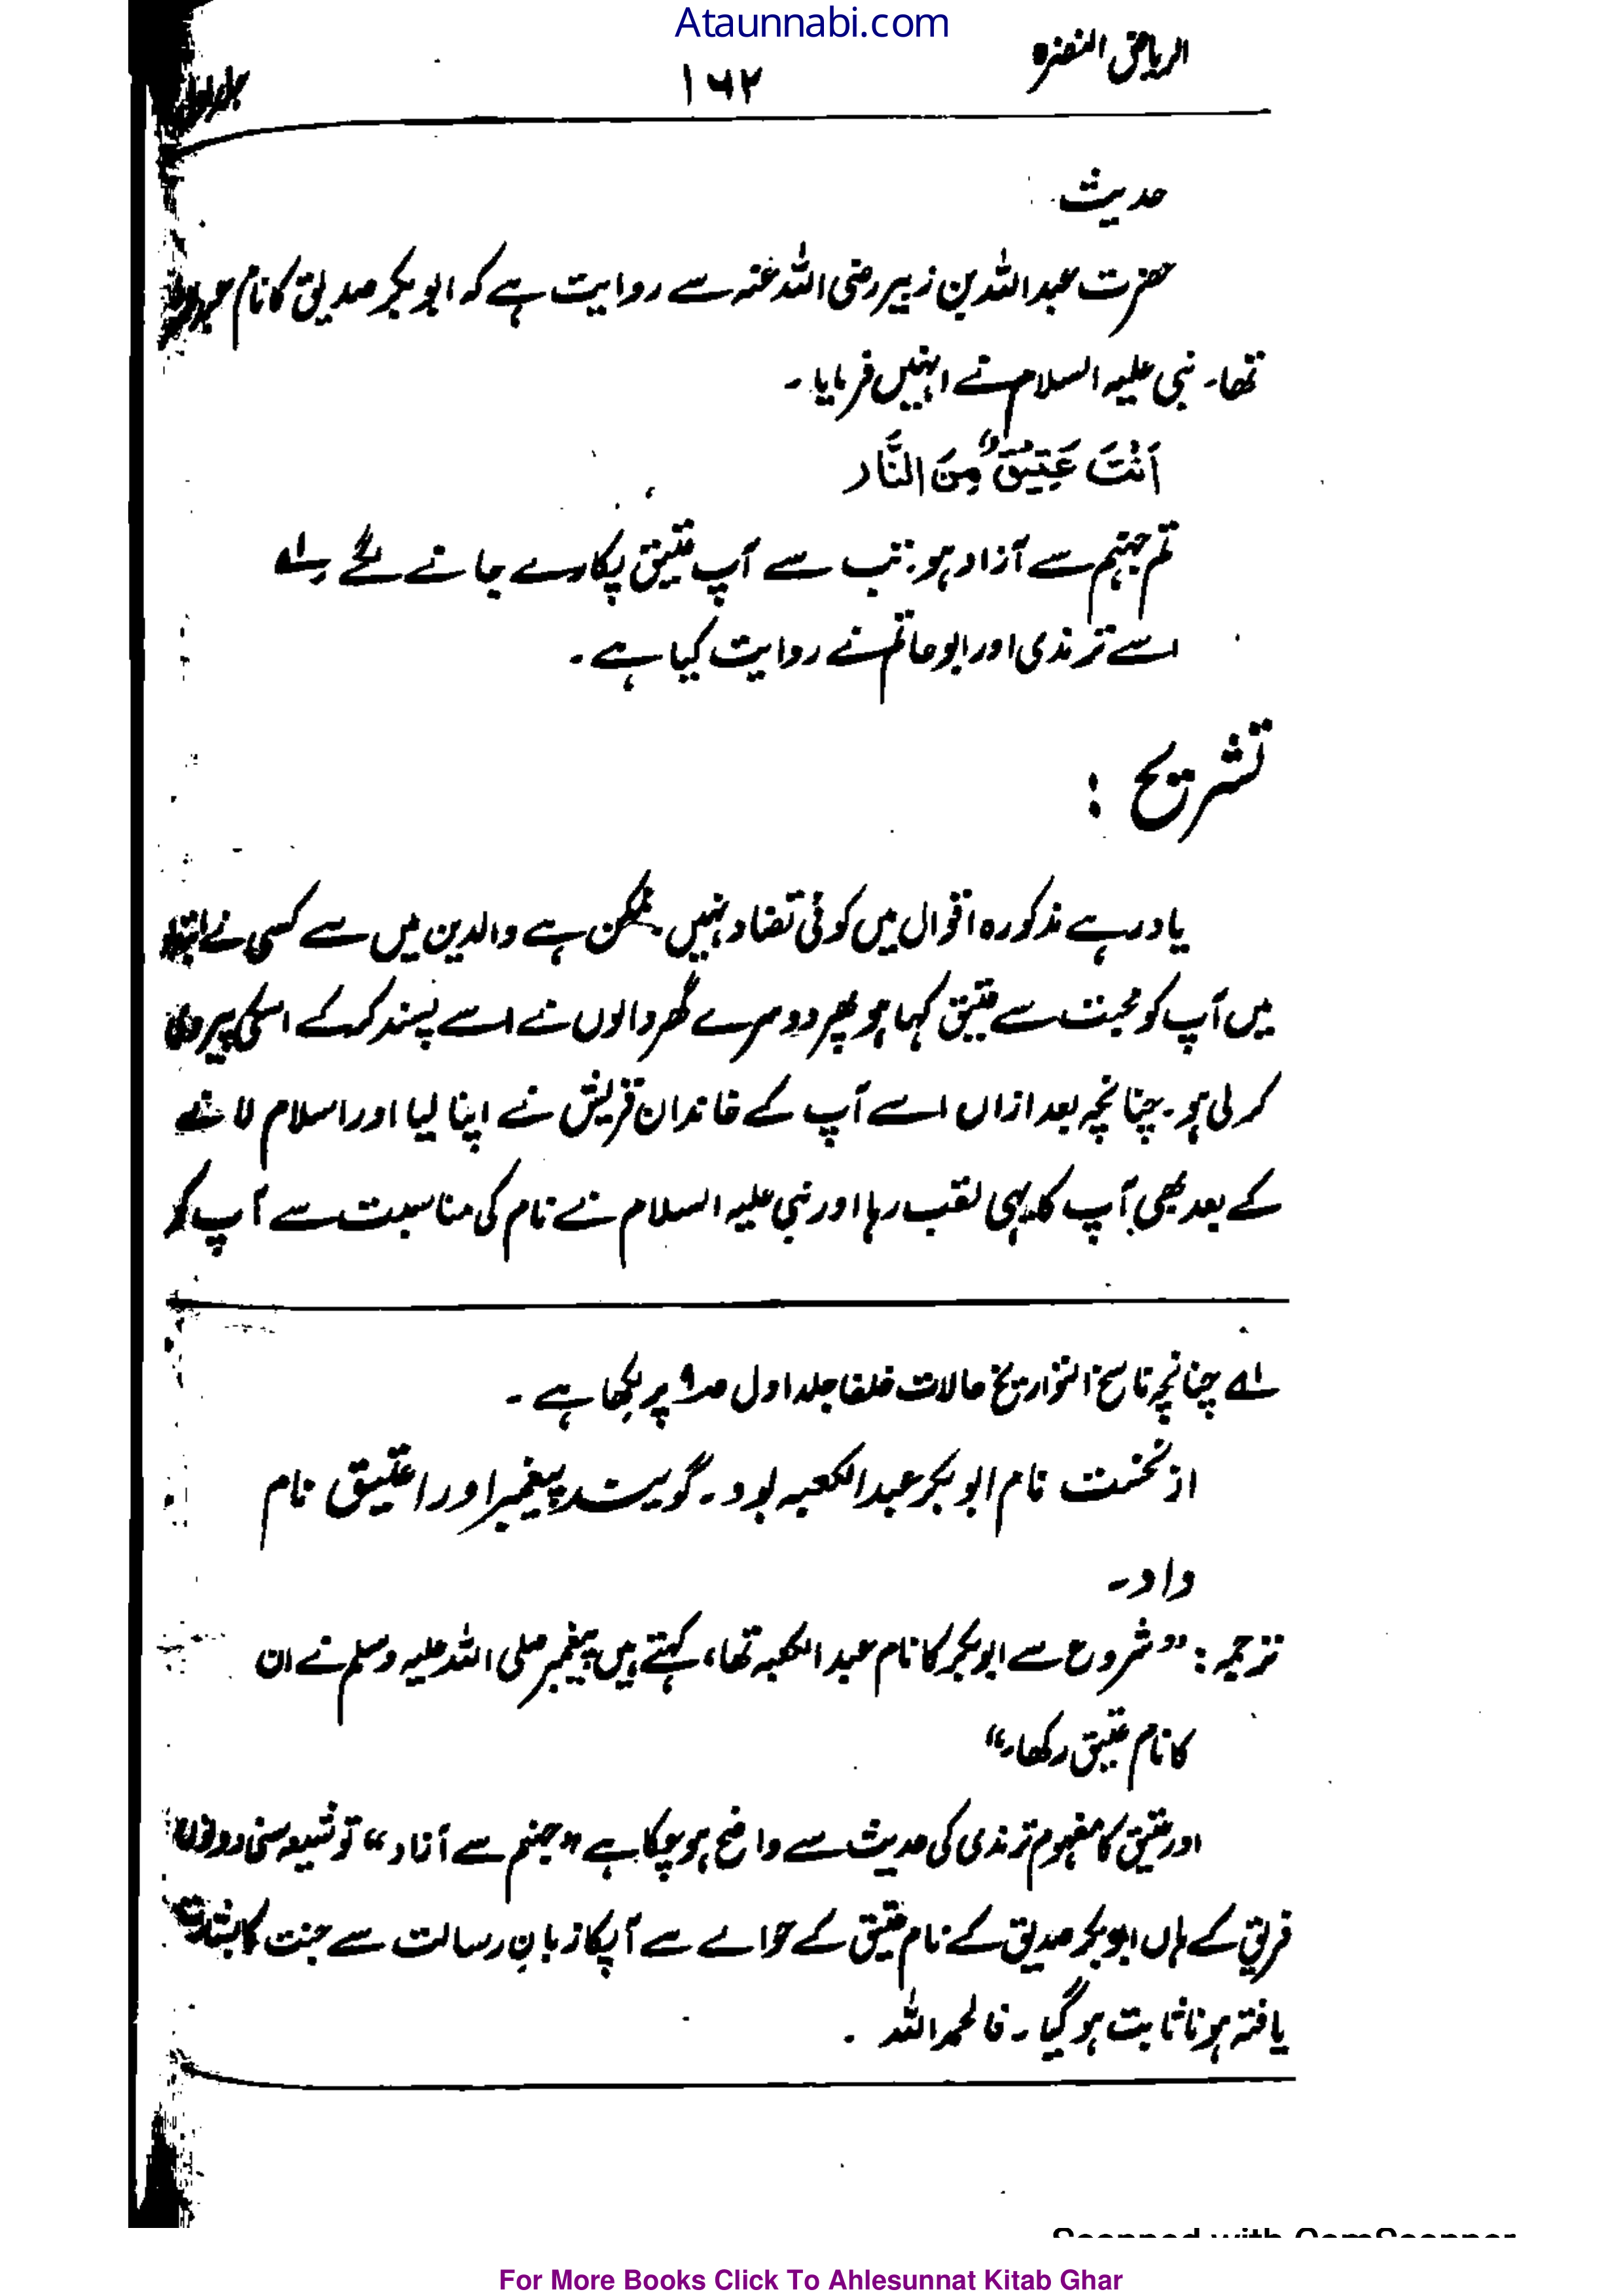 Ataunnabi.com
الریاض النضرہ
۱۶۲
جلد اول
حدیث
حضرت عبداللہ بن زبیر رضی اللہ عنہ سے روایت ہے کہ ابو بکر صدیق کا نام
تھا۔ نبی علیہ السلام نے انہیں فرمایا۔
اَنْتَ عَتِیْقٌ مِنَ النَّار
تم جہنم سے آزاد ہو۔ تب سے آپ عتیق پکارے جانے لگے۔ لے
اسے ترمذی اور ابو حاتم نے روایت کیا ہے۔
تشریح :
یاد رہے مذکورہ اقوال میں کوئی تضاد نہیں۔ ممکن ہے والدین میں سے کسی نے ابتداء
میں آپ کو محبت سے عتیق کہا ہو پھر دوسرے گھر والوں نے اسے پسند کر کے اسکی پیروی
کر لی ہو۔ چنانچہ بعد ازاں اسے آپ کے خاندان قریش نے اپنا لیا اور اسلام لانے
کے بعد بھی آپ کا یہی لقب رہا اور نبی علیہ السلام نے نام کی مناسبت سے آپ کو
لے چنانچہ ناسخ التواریخ حالات خلفا جلد اول صہ ۹ پر لکھا ہے۔
از نخست نام ابو بکر عبدالکعبہ بود۔ گویند پیغمبر اورا عتیق نام
داد۔
ترجمہ : ”شروع سے ابو بکر کا نام عبدالکعبہ تھا، کہتے ہیں پیغمبر صلی اللہ علیہ وسلم نے ان
کا نام عتیق رکھا۔“
اور عتیق کا مفہوم ترمذی کی حدیث سے واضح ہو چکا ہے ”جہنم سے آزاد“ تو شیعہ سنی دونوں
فریق کے ہاں ابو بکر صدیق کے نام عتیق کے حوالے سے آپکا زبانِ رسالت سے جنت کا بشارت
یافتہ ہونا ثابت ہو گیا۔ فالحمد اللہ ۔
Scanned with CamScanner
For More Books Click To Ahlesunnat Kitab Ghar